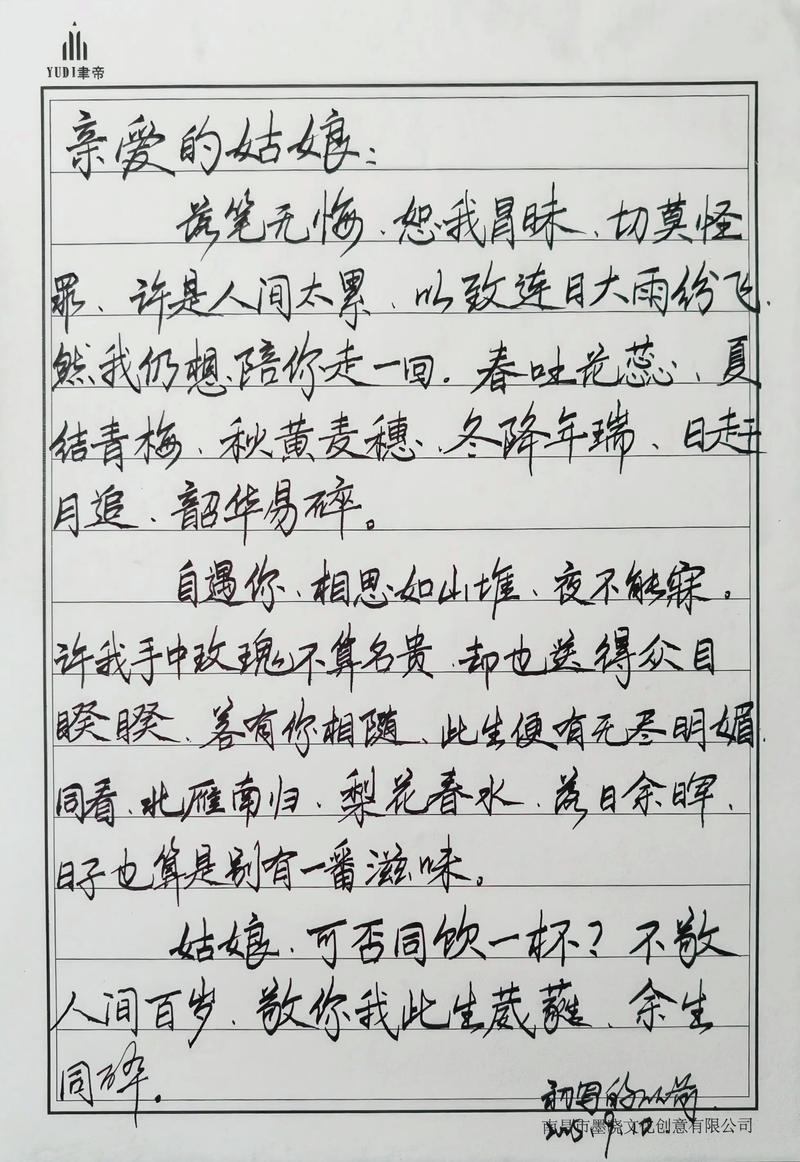 YUDI聿帝
亲爱的姑娘：
落笔无悔、恕我冒昧、切莫怪
罪、许是人间太累、以致连日大雨纷飞.
然我仍想陪你走一回。春吐花蕊、夏
结青梅、秋黄麦穗、冬降年瑞、日赶
月追、韶华易碎。
自遇你、相思如山堆、夜不能寐。
许我手中玫瑰不算名贵、却也送得众目
睽睽、若有你相随、此生便有无尽明媚.
同看、北雁南归、梨花春水、落日余晖、
日子也算是别有一番滋味。
姑娘、可否同饮一杯？不敬
人间百岁、敬你我此生葳蕤、余生
同碎。
南昌市墨骁文化创意有限公司